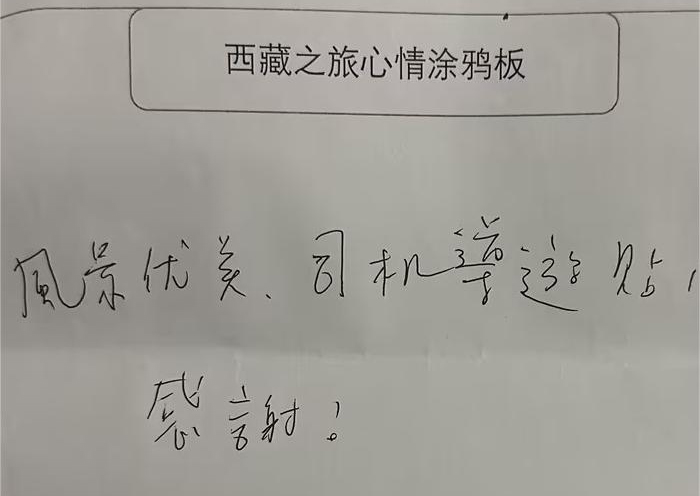 西藏之旅心情涂鸦板
風景优美、司机導遊貼
感謝!